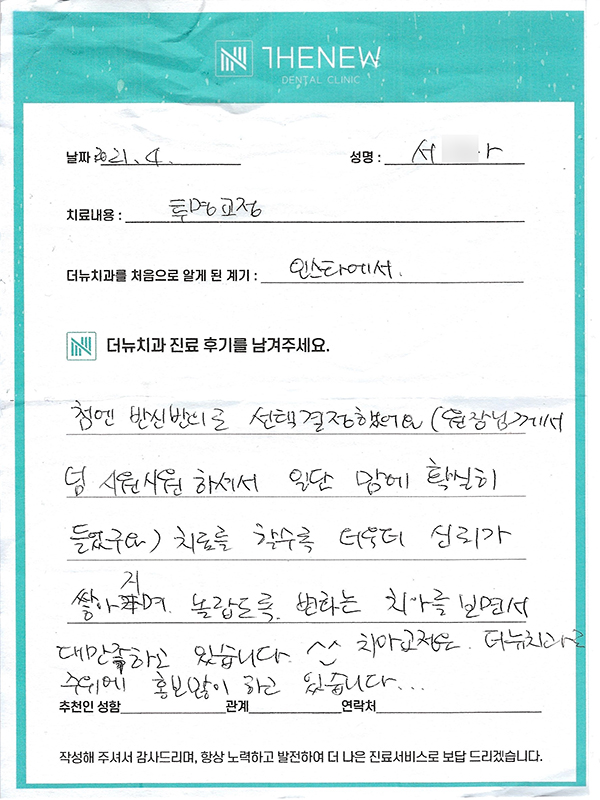 THENEW
DENTAL CLINIC
날짜 2021. 4. 성명 : 서
치료내용 : 투명교정
더뉴치과를 처음으로 알게 된 계기 : 인스타에서.
더뉴치과 진료 후기를 남겨주세요.
첨엔 반신반의로 선택결정했어요 (원장님께서
넘 시원시원 하셔서 일단 맘에 확실히
들었구요) 치료를 할수록 더욱더 신뢰가
쌓아지며 놀랍도록 변하는 치아를 보면서
대만족하고 있습니다. ^^ 치아교정은 더뉴치과로
주위에 홍보많이 하고 있습니다...
추천인 성함 관계 연락처
작성해 주셔서 감사드리며, 항상 노력하고 발전하여 더 나은 진료서비스로 보답 드리겠습니다.